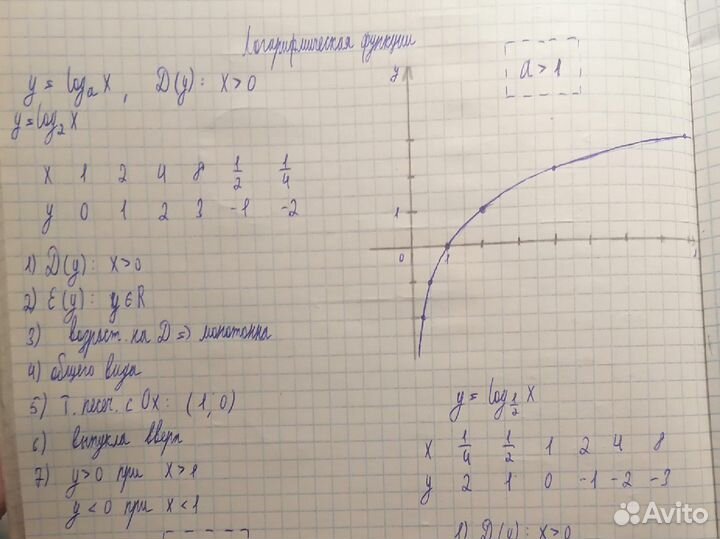 Логарифмическая функции
y = logₐ x, D(y): x > 0
y = log₂ x
x 1 2 4 8 1/2 1/4
y 0 1 2 3 -1 -2
1) D(y): x > 0
2) E(y): y ∈ R
3) возраст. на D => монотонна
4) общего вида
5) т. песеч. с Ox: (1, 0)
6) выпукла вверх
7) y > 0 при x > 1
y < 0 при x < 1
a > 1
y
1
0 1
y = log_{1/2} x
x 1/4 1/2 1 2 4 8
y 2 1 0 -1 -2 -3
1) D(y): x > 0
Avito